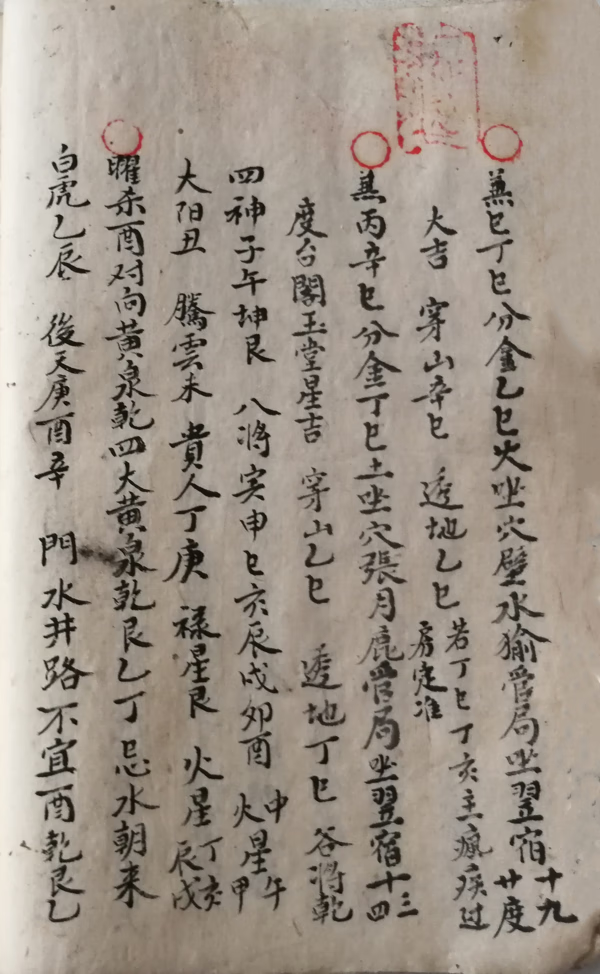 兼巳丁巳分金乙巳火坐穴壁水㺄管局坐翌宿十九廿度
大吉 穿山辛巳 透地乙巳 若丁巳丁亥主瘋疾过房定准
兼丙辛巳分金丁巳土坐穴張月鹿管局坐翌宿十三十四
度台閣玉堂星吉 穿山乙巳 透地丁巳 谷将乾
四神子午坤艮 八將寅申巳亥辰戌卯酉 火星中午甲
大阳丑 騰雲未 貴人丁庚 禄星艮 火星丁亥辰戌
曜杀酉对向黄泉乾四大黄泉乾艮乙丁忌水朝来
白虎乙辰 後天庚酉辛 門水井路不宜酉乾艮乙